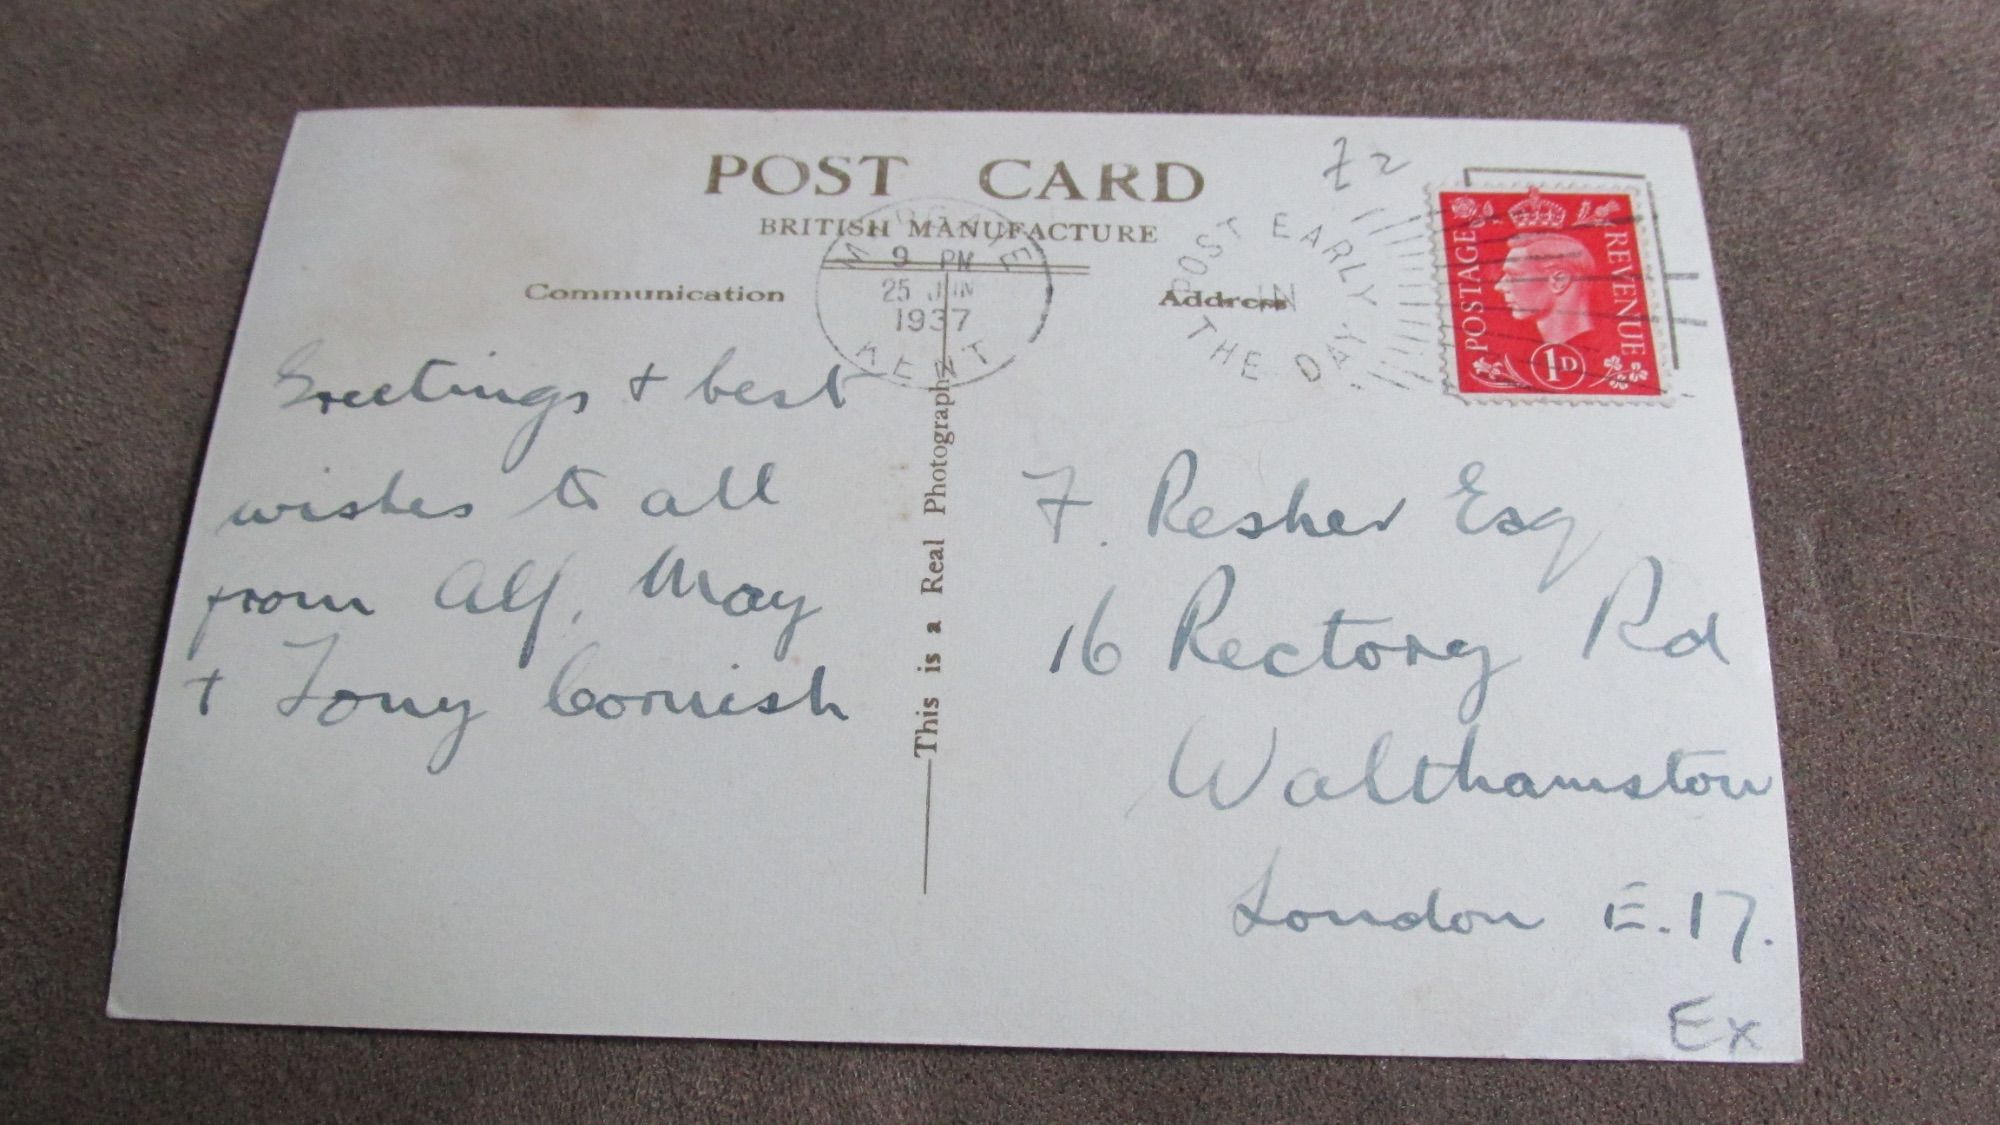 POST CARD
BRITISH MANUFACTURE
Communication
Address
MARGATE
9 PM
25 JUN
1937
KENT
POST EARLY
IN
THE DAY
£2
POSTAGE
REVENUE
1D
Greetings + best
wishes to all
from Alf, May
+ Tony Cornish
This is a Real Photograph
F. Resher Esq
16 Rectory Rd
Walthamstow
London E.17.
Ex